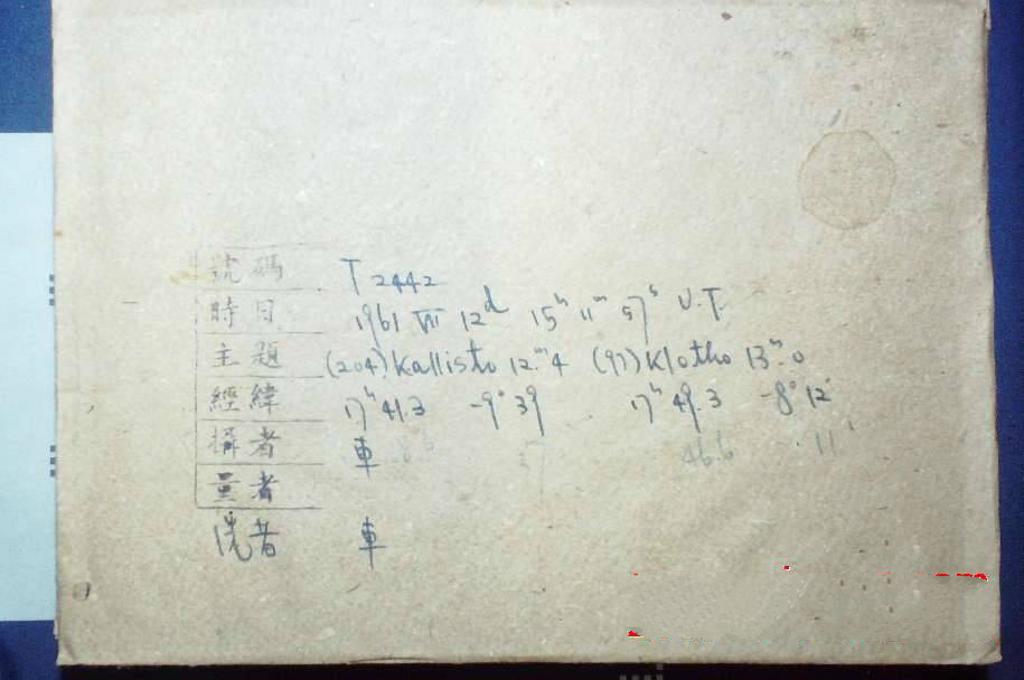 號碼 T 2442
時日 1961 VII 12ᵈ 15ʰ 11ᵐ 57ˢ U.T.
主題 (204) Kallisto 12.ᵐ4 (97) Klotho 13.ᵐ0
經緯 17ʰ 41.3 -9° 39 17ʰ 49.3 -8° 12'
攝者 車 46.6 11'
量者
洗者 車